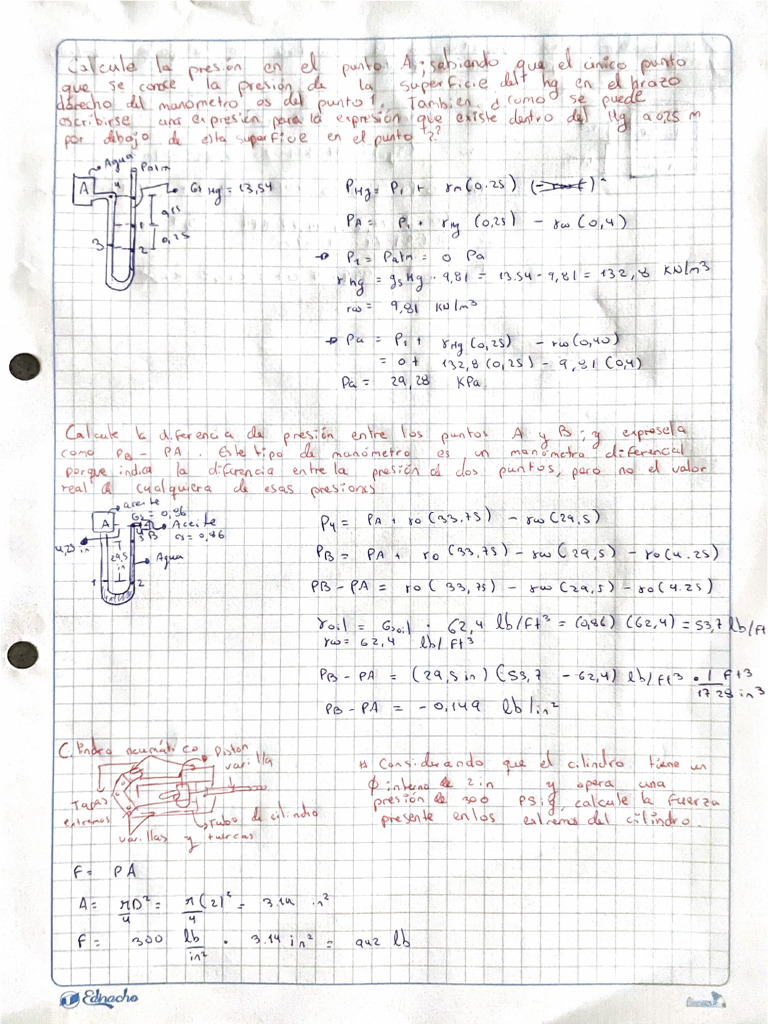 Calcule la presión en el punto A; sabiendo que el único punto
que se conoce la presión de la superficie del hg en el brazo
derecho del manómetro, es del punto 1. Tambien ¿como se puede
escribirse una expresión para la expresión que existe dentro del Hg a 0,25 m
por debajo de esta superficie en el punto 2?
Agua
Patm
A
4
Gs Hg = 13,54
0,15
1
0,25
3
2
PHg = P1 + rm (0.25)
PA = P1 + rHg (0,25) - rw (0,4)
P1 = Patm = 0 Pa
rHg = gsHg · 9,81 = 13.54 · 9,81 = 132,8 KN/m3
rw = 9,81 KN/m3
Pa = P1 + rHg (0,25) - rw (0,40)
= 0 + 132,8 (0,25) - 9,81 (0,4)
Pa = 29,28 KPa
Calcule la diferencia de presión entre los puntos A y B; y expresela
como PB - PA. Este tipo de manómetro es un manómetro diferencial
porque indica la diferencia entre la presión de dos puntos, pero no el valor
real de cualquiera de esas presiones
aceite
Gs = 0,86
A
Aceite
B
Gs = 0,86
4,25 in
29,5
in
Agua
1
2
P4 = PA + ro (33.75) - rw (29,5)
PB = PA + ro (33,75) - rw (29,5) - ro (4.25)
PB - PA = ro (33,75) - rw (29,5) - ro (4.25)
roil = Gsoil · 62,4 lb/ft3 = (0,86) (62,4) = 53,7 lb/ft
rw = 62,4 lb/ft3
PB - PA = (29,5 in) (53,7 - 62,4) lb/ft3 · 1 ft3
1728 in3
PB - PA = - 0,149 lb/in2
Cilindro neumático
Piston
varilla
Tapas
extremos
Tubo de cilindro
varillas y tuercas
# Considerando que el cilindro tiene un
ϕ interno de 2 in y opera una
presión de 300 PSig, calcule la fuerza
presente en los extremos del cilindro.
F = PA
A = πD2 = π(2)2 = 3.14 in2
4 4
F = 300 lb · 3.14 in2 = 942 lb
in2
Ednacho